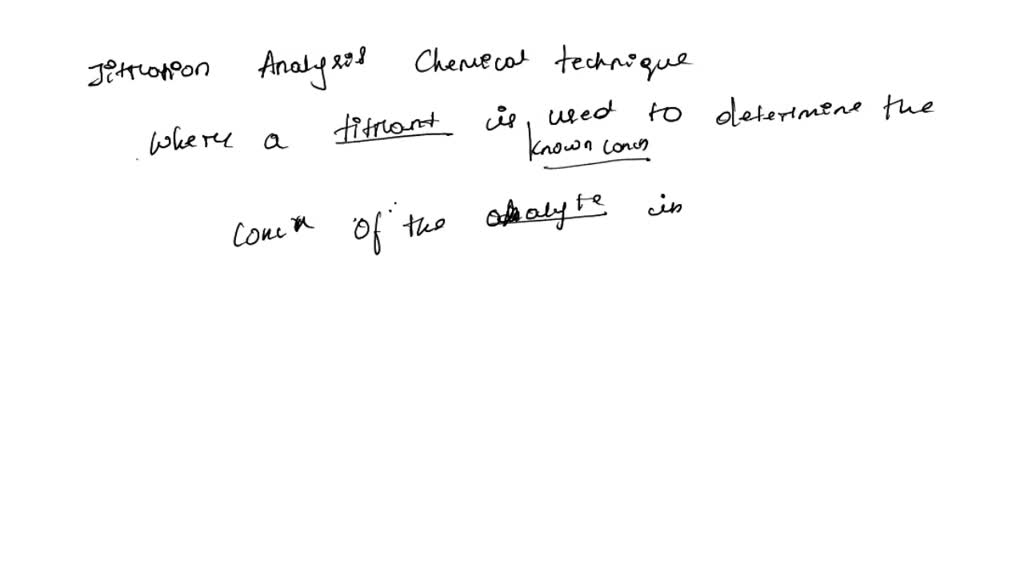 Titration Analysis Chemical technique
where a titrant is used to determine the
known concn
concn of the analyte in